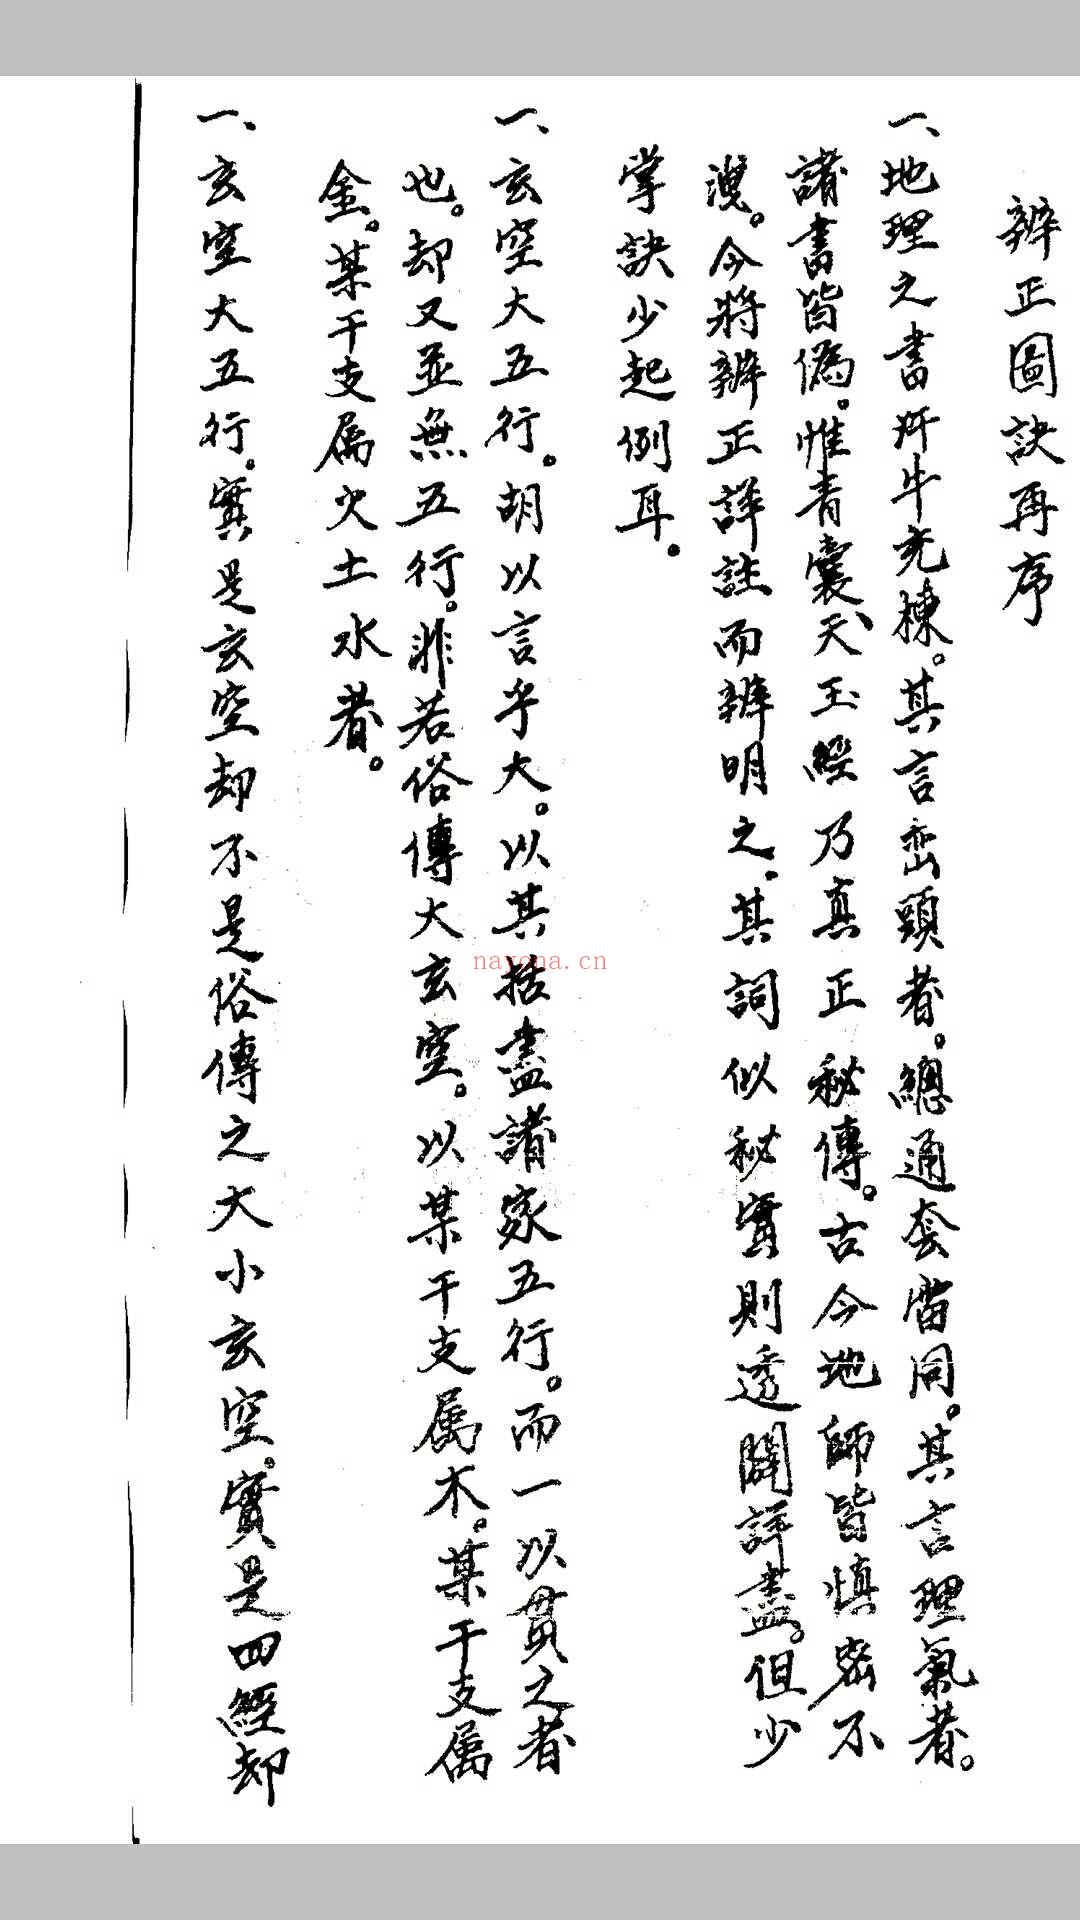 辨正圖訣再序
一、地理之書汗牛充棟。其言巒頭者。總通套雷同。其言理氣者。
諸書皆偽。惟青囊、天玉經乃真正秘傳。古今地師皆慎密不
洩。今將辨正詳註而辨明之。其詞似秘實則透闢詳盡。但少
掌訣少起例耳。
一、玄空大五行。胡以言乎大。以其括盡諸家五行。而一以貫之者
也。却又並無五行。非若俗傳大玄空。以某干支属木。某干支属
金。某干支属火土水者。
一、玄空大五行。實是玄空却不是俗傳之大小玄空。實是四經却
nayona.cn